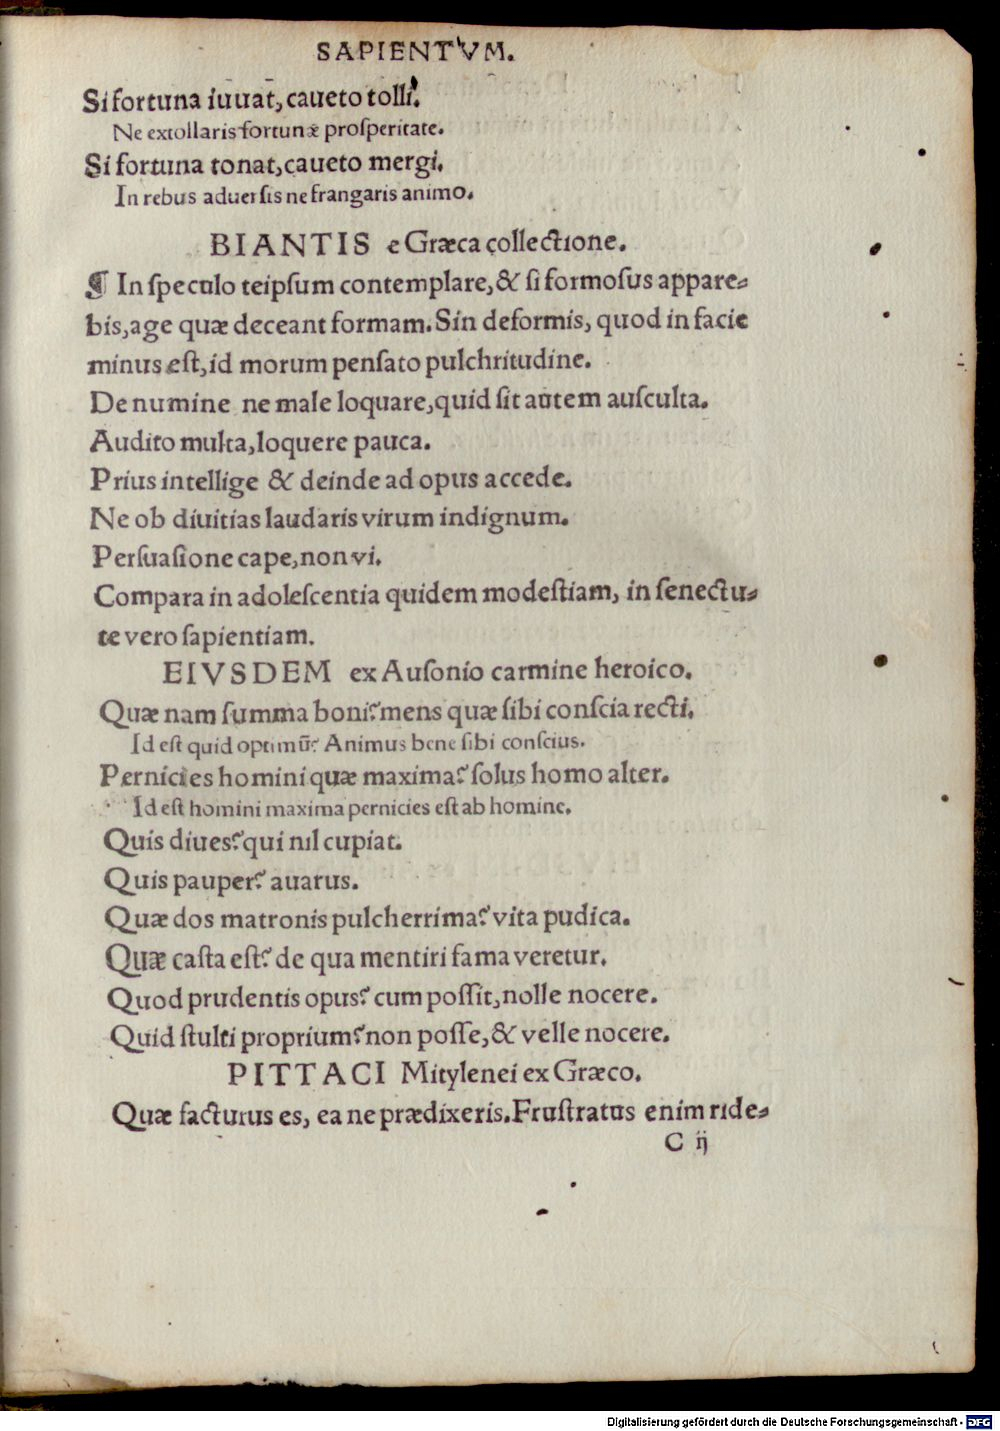 SAPIENTVM.
Si fortuna iuuat, caueto tolli.
Ne extollaris fortunæ proſperitate.
Si fortuna tonat, caueto mergi.
In rebus aduerſis ne frangaris animo.
BIANTIS e Græca collectione.
¶ In ſpeculo teipſum contemplare, & ſi formoſus appare-
bis, age quæ deceant formam. Sin deformis, quod in facie
minus eſt, id morum penſato pulchritudine.
De numine ne male loquare, quid ſit autem auſculta.
Audito multa, loquere pauca.
Prius intellige & deinde ad opus accede.
Ne ob diuitias laudaris virum indignum.
Perſuaſione cape, non vi.
Compara in adoleſcentia quidem modeſtiam, in ſenectu-
te vero ſapientiam.
EIVSDEM ex Auſonio carmine heroico.
Quæ nam ſumma boni? mens quæ ſibi conſcia recti.
Id eſt quid optimū? Animus bene ſibi conſcius.
Pernicies homini quæ maxima? ſolus homo alter.
Id eſt homini maxima pernicies eſt ab homine.
Quis diues? qui nil cupiat.
Quis pauper? auarus.
Quæ dos matronis pulcherrima? vita pudica.
Quæ caſta eſt? de qua mentiri fama veretur.
Quod prudentis opus? cum poſſit, nolle nocere.
Quid ſtulti proprium? non poſſe, & velle nocere.
PITTACI Mitylenei ex Græco.
Quæ facturus es, ea ne prædixeris. Fruſtratus enim ride-
C ij
Digitalisierung gefördert durch die Deutsche Forschungsgemeinschaft - DFG